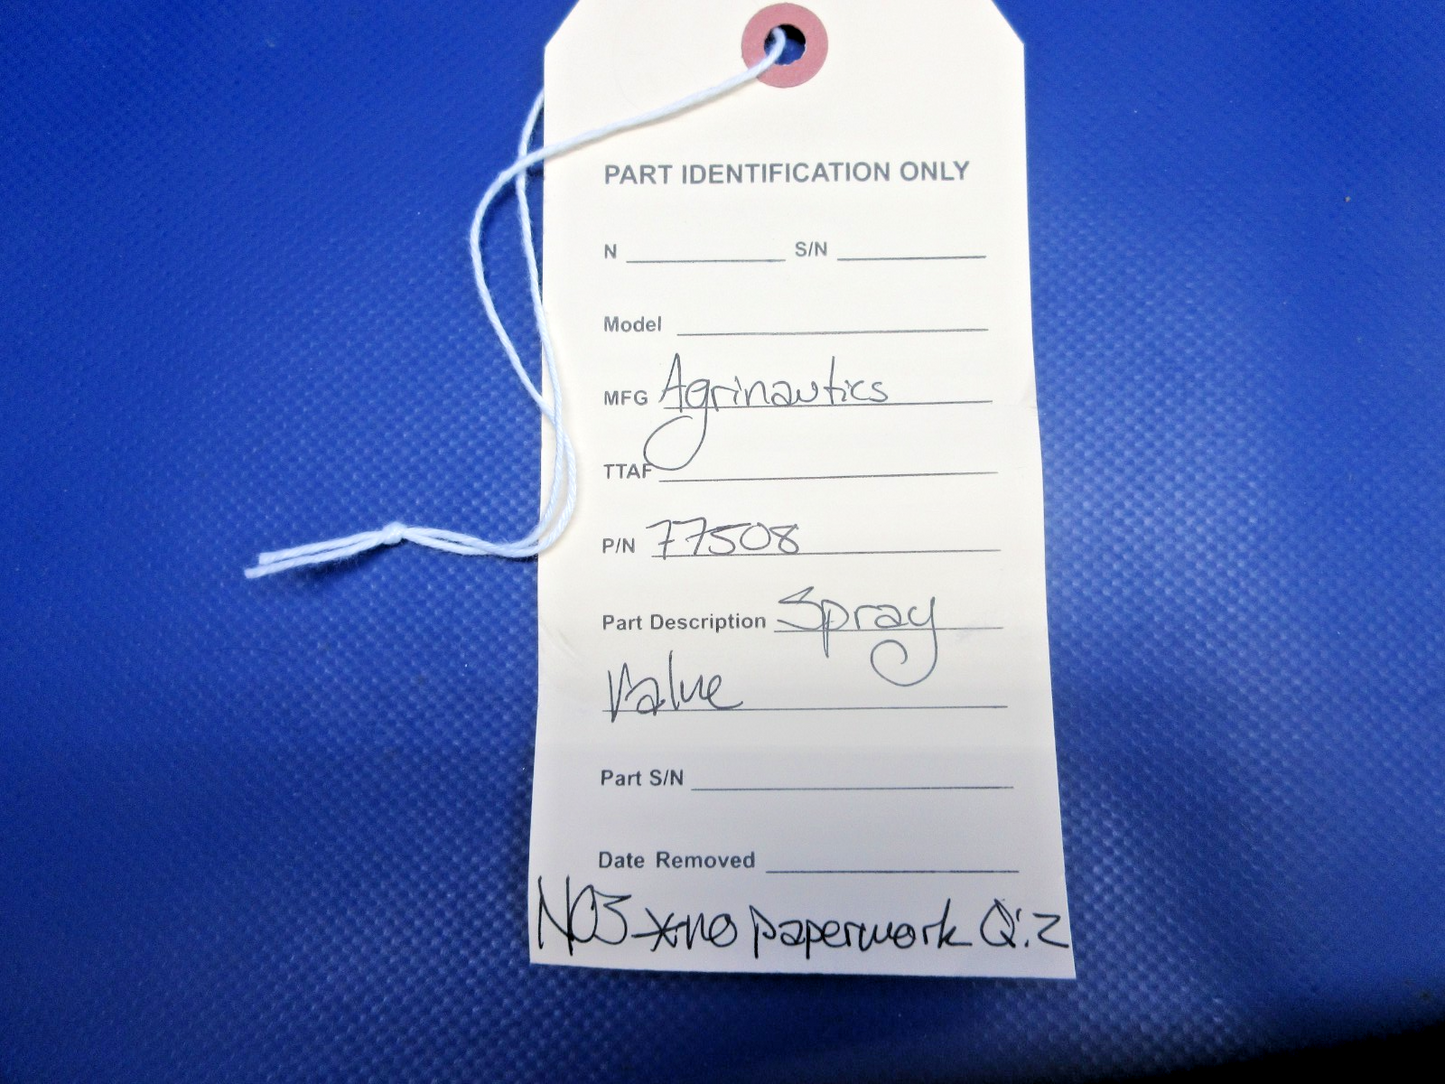 PART IDENTIFICATION ONLY
N S/N
Model
MFG Agrinautics
TTAF
P/N 77508
Part Description Spray
Valve
Part S/N
Date Removed
NOS *no paperwork Q:2